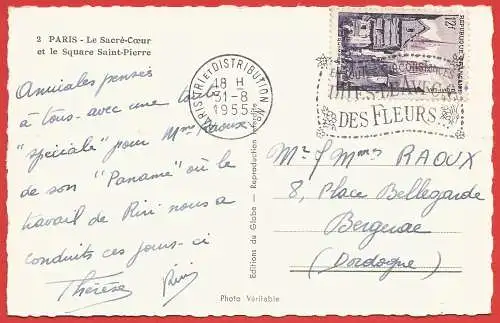 2 PARIS - Le Sacré-Cœur
et le Square Saint-Pierre
Amicales pensées
à tous - avec une toute
"spéciale" pour Mme Raoux.
de son "Paname" où le
travail de Riri nous a
conduits ces jours-ci
Thérèse Riri
PARIS TRI ET DISTRIBUTION
18 H
31-8
1955
12f
REPUBLIQUE FRANÇAISE
DITES-LE AVEC
DES FLEURS
Editions du Globe - Reproduction interdite
Mr & Mmes RAOUX
8, Place Bellegarde
Bergerac
(Dordogne)
Photo Véritable